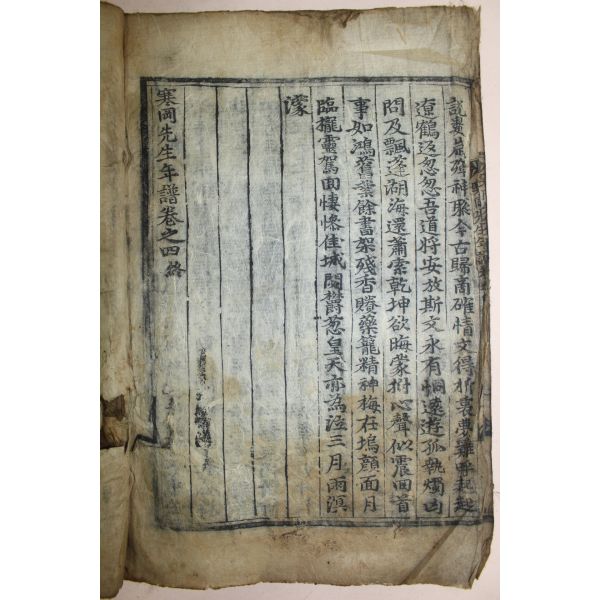 說盡幽
神聚今古歸商確情文得折衷夢難呼起起
遼鶴返忽忽吾道將安放斯文永有恫遠遊孤執燭凶
問及飄蓬湖海還蕭索乾坤欲晦蒙拊心聲似震回首
事如鴻舊業餘書架殘香賸藥籠精神梅在塢顔面月
臨攏靈駕面悽佳城閟鬱葱皇天亦爲泣三月雨溟
濛
寒岡先生年譜卷之四 終